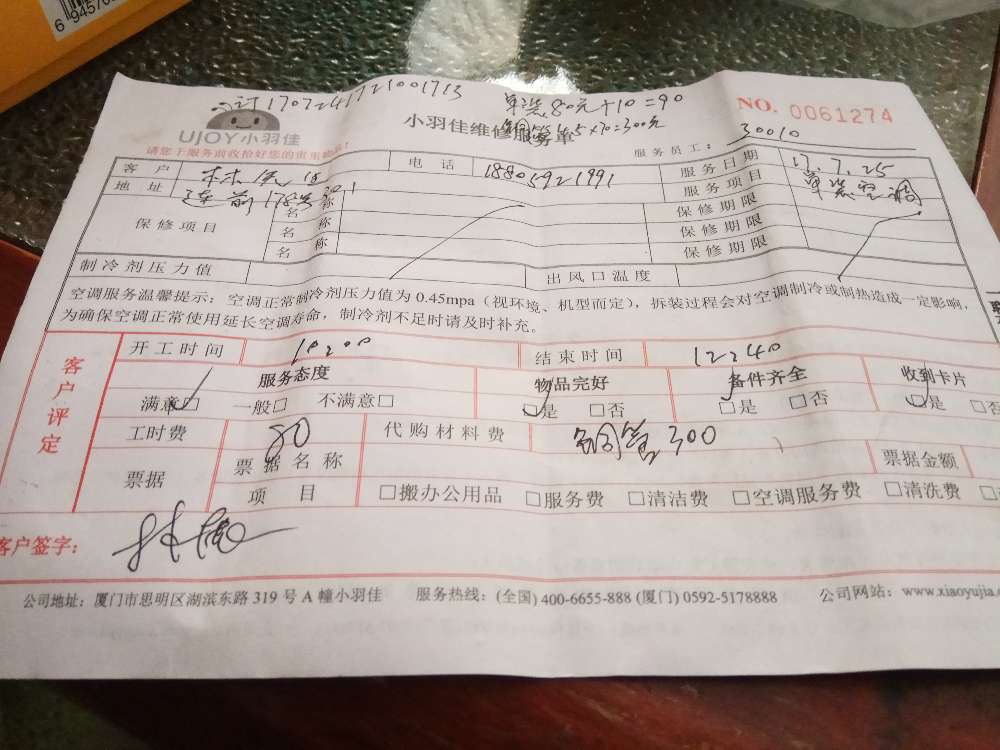 6 94570
1707241721001713
单装80元+10=90
NO. 0061274
UJOY小羽佳
小羽佳维修服务单
铜管4.5×70=300元
请您于服务前收拾好您的贵重物品！
服务员工： 30010
客户 电话 18805921991 服务日期 17.7.25
地址 莲前 服务项目 单装空调
保修项目 名称 保修期限
名称 保修期限
名称 保修期限
制冷剂压力值 出风口温度
空调服务温馨提示：空调正常制冷剂压力值为0.45mpa（视环境、机型而定），拆装过程会对空调制冷或制热造成一定影响，
为确保空调正常使用延长空调寿命，制冷剂不足时请及时补充。
客户评定
开工时间 10:00 结束时间 12:40
服务态度 物品完好 备件齐全 收到卡片
满意□ 一般□ 不满意□ □是 □否 □是 □否 □是 □否
工时费 80 代购材料费 铜管300
票据 票据名称 票据金额
项目 □搬办公用品 □服务费 □清洁费 □空调服务费 □清洗费
客户签字：
公司地址：厦门市思明区湖滨东路 319 号 A 幢小羽佳 服务热线：(全国) 400-6655-888 (厦门) 0592-5178888 公司网站：www.xiaoyujia.c